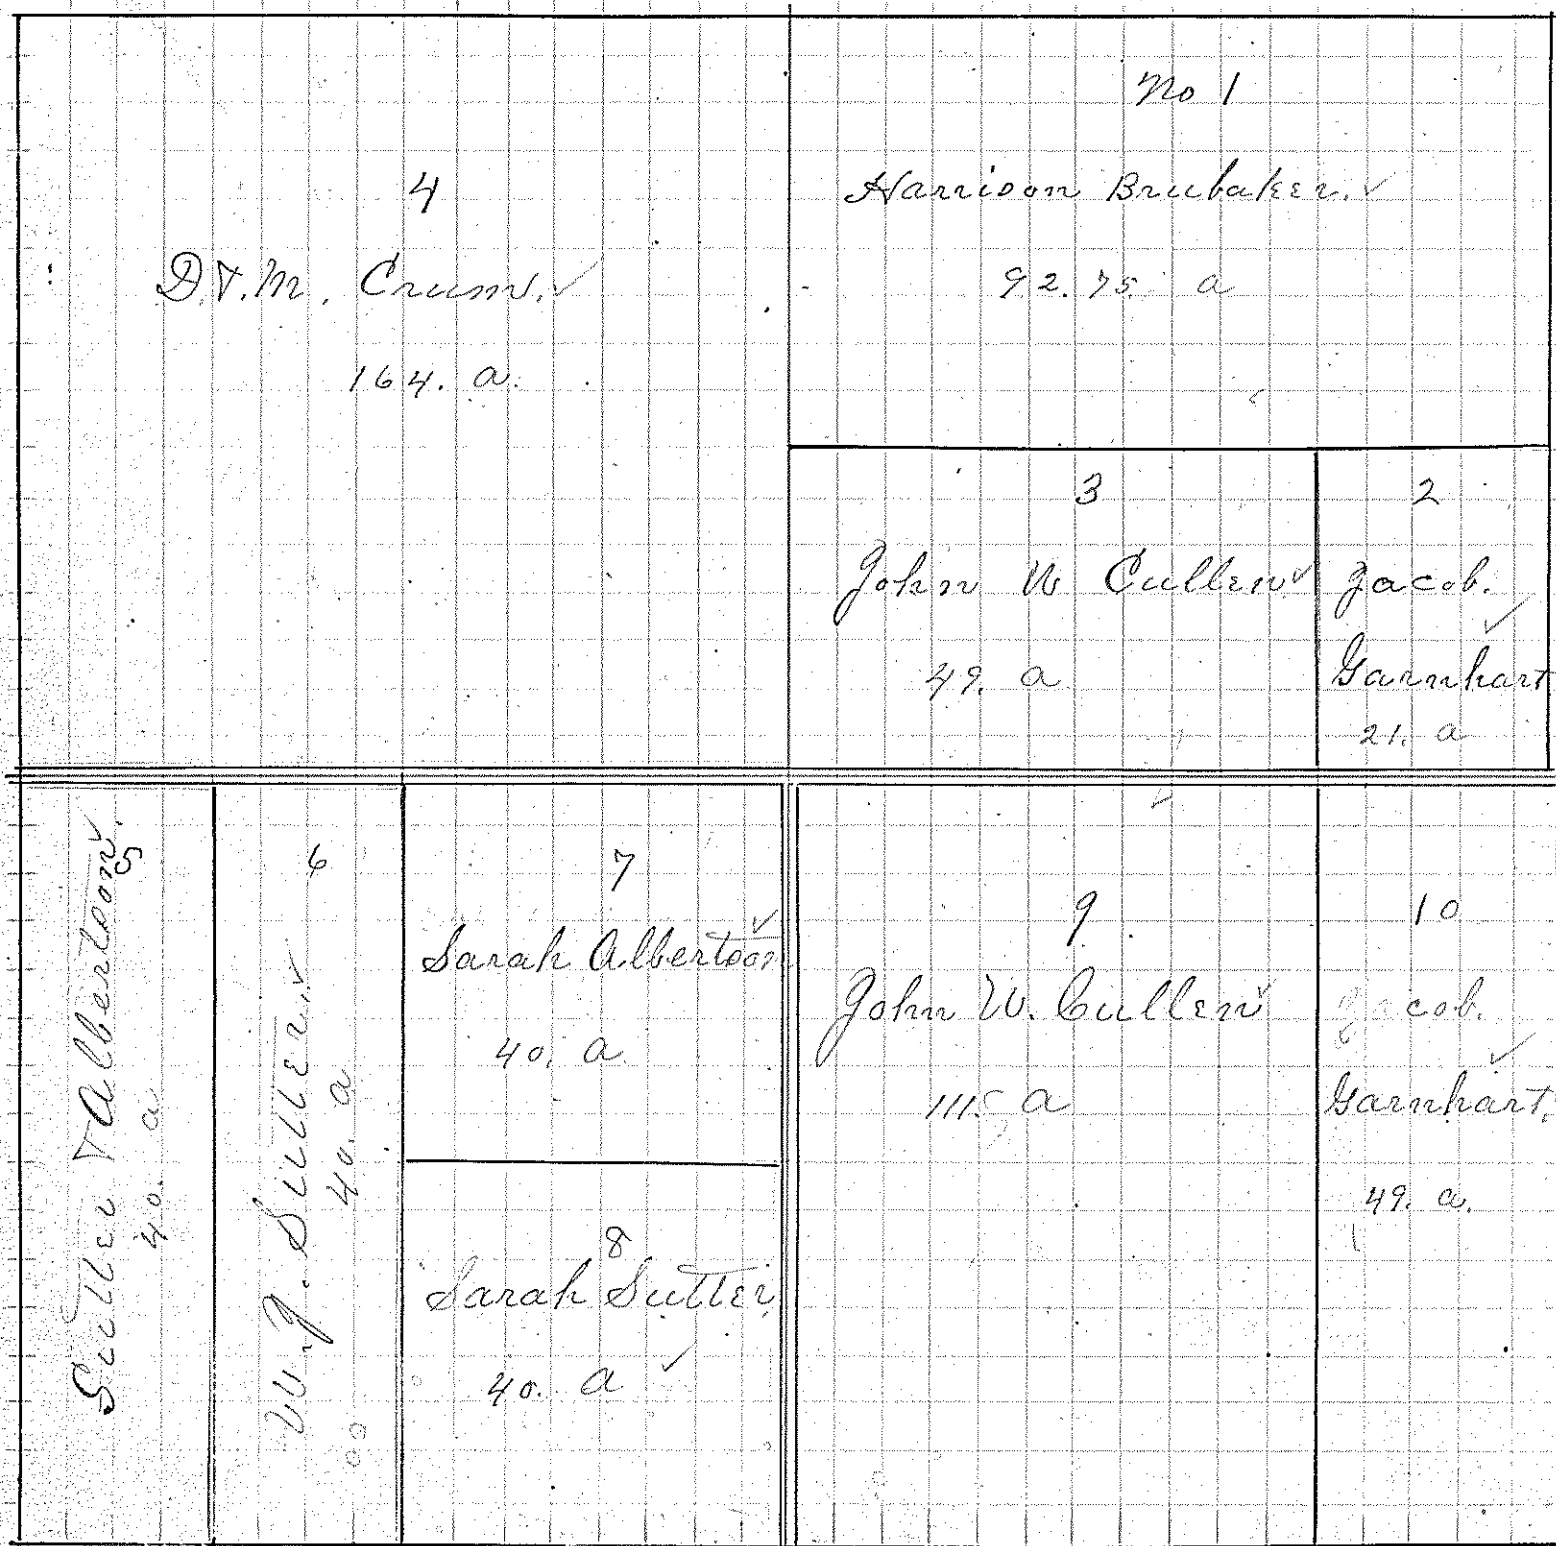 No 1
Harrison Brubaker. ✓
92.75. a
4
D.T.M. Crum. ✓
164. a.
3
John W Cullen ✓
49. a
2
Jacob. ✓
Garnhart
21. a
5
Sutter & Albertson ✓.
40. a
6
W. J. Sutter. ✓
40. a
7
Sarah Albertson ✓
40. a
8
Sarah Sutter
40. a ✓
9
John W. Cullen ✓
111. a
10
Jacob. ✓
Garnhart.
49. a.